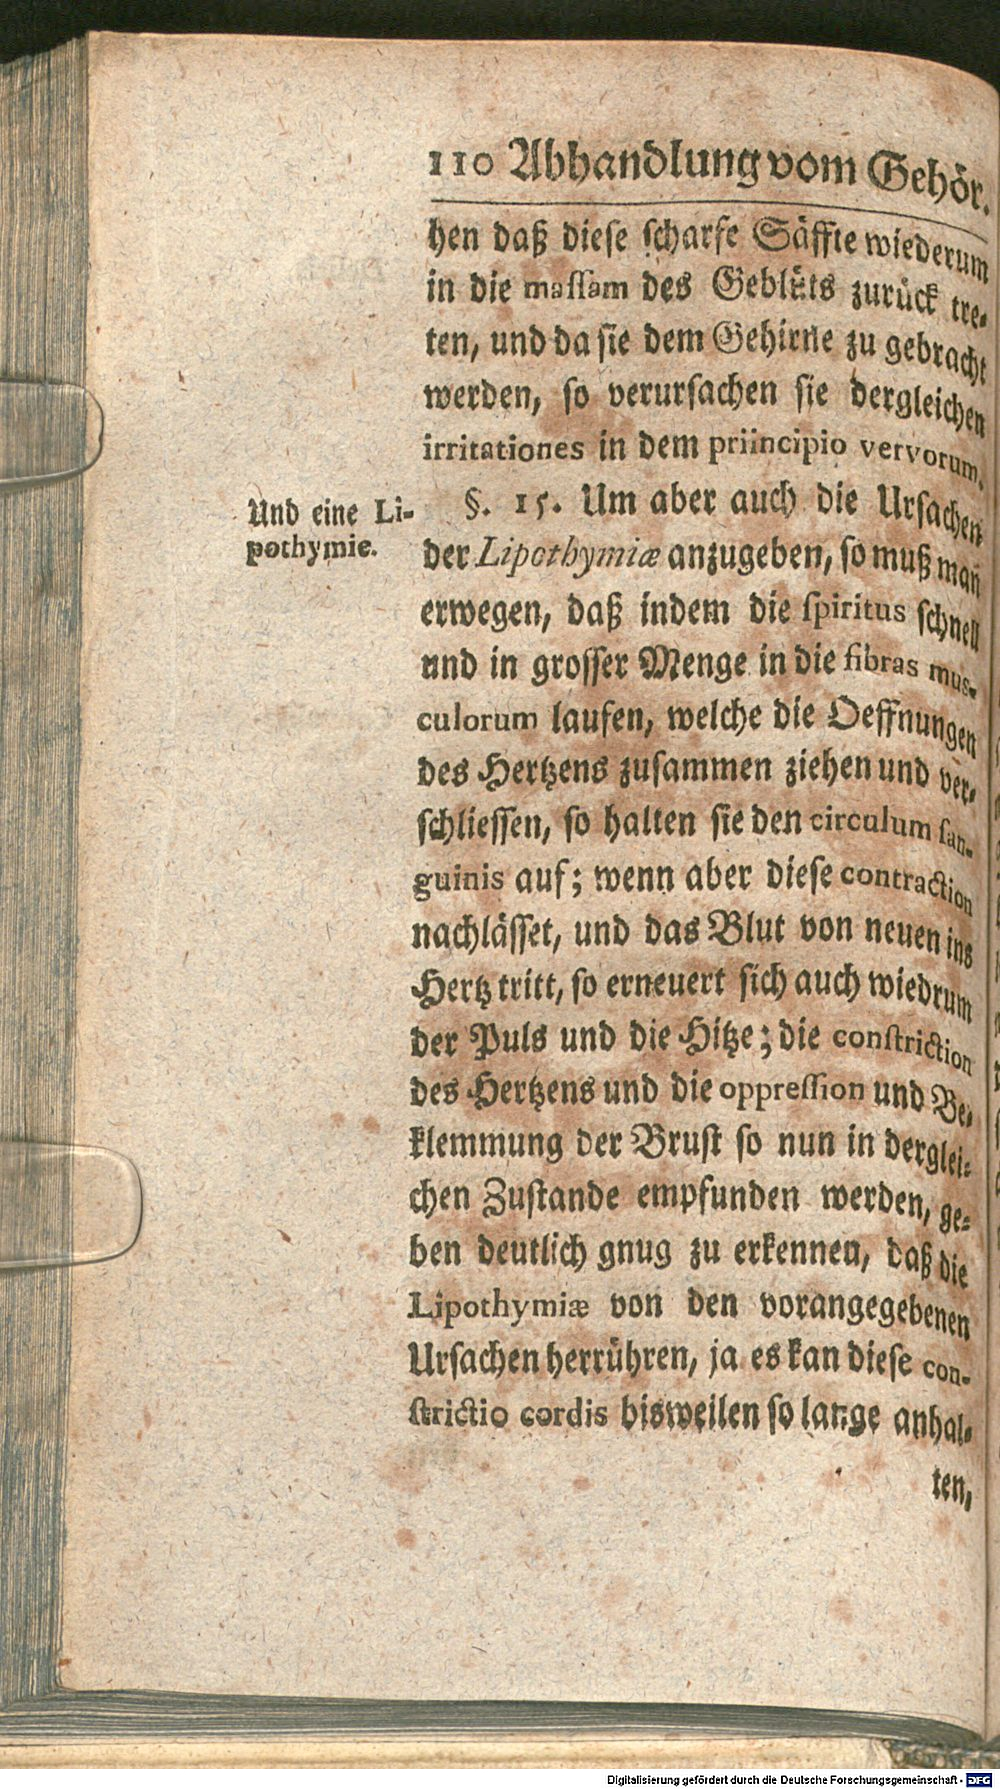 110 Abhandlung vom Gehör.
hen daß diese scharfe Säffte wiederum
in die massam des Geblüts zurück tre-
ten, und da sie dem Gehirne zu gebracht
werden, so verursachen sie dergleichen
irritationes in dem priincipio vervorum.
Und eine Li-
pothymie.
§. 15. Um aber auch die Ursachen
der Lipothymiæ anzugeben, so muß man
erwegen, daß indem die spiritus schnell
und in grosser Menge in die fibras mus-
culorum laufen, welche die Oeffnungen
des Hertzens zusammen ziehen und ver-
schliessen, so halten sie den circulum san-
guinis auf; wenn aber diese contraction
nachlässet, und das Blut von neuen ins
Hertz tritt, so erneuert sich auch wiedrum
der Puls und die Hitze; die constriction
des Hertzens und die oppression und Be-
klemmung der Brust so nun in derglei-
chen Zustande empfunden werden, ge-
ben deutlich gnug zu erkennen, daß die
Lipothymiæ von den vorangegebenen
Ursachen herrühren, ja es kan diese con-
strictio cordis bisweilen so lange anhal-
ten,
Digitalisierung gefördert durch die Deutsche Forschungsgemeinschaft - DFG